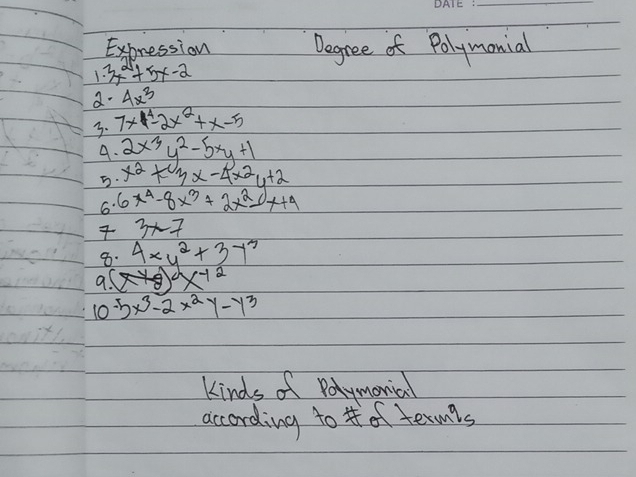 DATE :
Expression Degree of Polymonial
1. 3x² + 5x - 2
2. 4x³
3. 7x⁴ - 2x² + x - 5
4. 2x³y² - 5xy + 1
5. x² + 3x - 4x²y + 2
6. 6x⁴ - 8x³ + 2x² - x + 4
7 3x - 7
8. 4xy² + 3y³
9.
10 -5x³ - 2x²y - y³
Kinds of Polymonial
according to # of terms